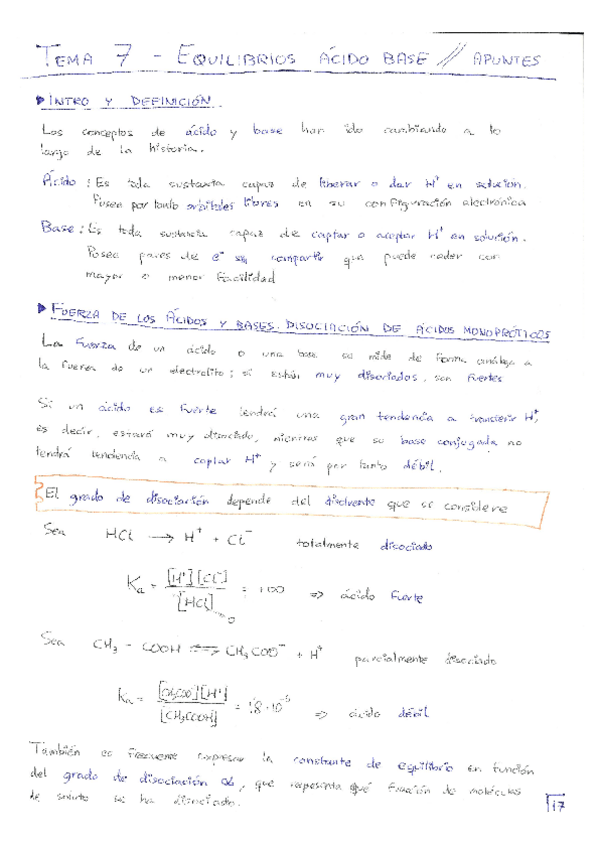 TEMA 7 - EQUILIBRIOS ÁCIDO BASE // APUNTES
▶ INTRO Y DEFINICIÓN.
Los conceptos de ácido y base han ido cambiando a lo
largo de la historia.
Ácido: Es toda sustancia capaz de liberar o dar H⁺ en solución.
Posee por tanto orbitales libres en su configuración electrónica
Base: Es toda sustancia capaz de captar o aceptar H⁺ en solución.
Posee pares de e⁻ sin compartir que puede ceder con
mayor o menor facilidad
▶ FUERZA DE LOS ÁCIDOS Y BASES. DISOCIACIÓN DE ÁCIDOS MONOPRÓTICOS
La fuerza de un ácido o una base se mide de forma análoga a
la fuerza de un electrolito; si están muy disociados, son fuertes
Si un ácido es fuerte tendrá una gran tendencia a transferir H⁺,
es decir, estará muy disociado, mientras que su base conjugada no
tendrá tendencia a captar H⁺ y será por tanto débil.
El grado de disociación depende del disolvente que se considere
Sea HCl → H⁺ + Cl⁻ totalmente disociado
Ka = [H⁺][Cl⁻] / [HCl] → 0 = ∞ ⇒ ácido fuerte
Sea CH₃ - COOH ⇌ CH₃COO⁻ + H⁺ parcialmente disociado
Ka = [CH₃COO⁻][H⁺] / [CH₃COOH] = 1'8·10⁻⁵ ⇒ ácido débil
También es frecuente expresar la constante de equilibrio en función
del grado de disociación α, que representa qué fracción de moléculas
de soluto se ha disociado.
17